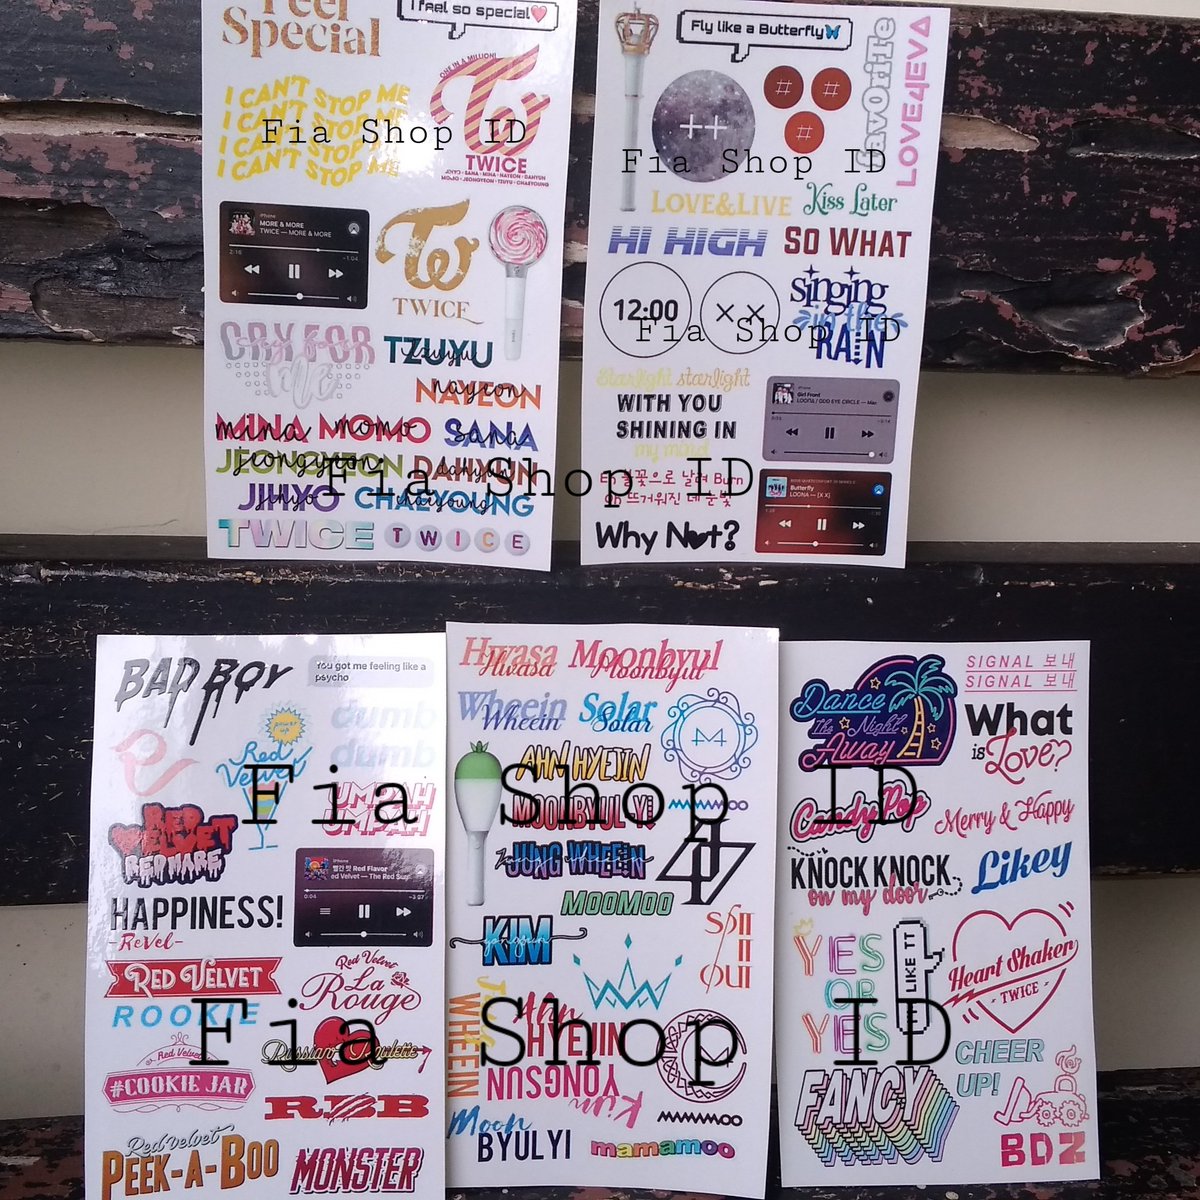 Feel
Special
I feel so special
I CAN'T STOP ME
I CAN'T STOP ME
I CAN'T STOP ME
I CAN'T STOP ME
Fia Shop ID
ONE IN A MILLION!
TWICE
iPhone
MORE & MORE
TWICE — MORE & MORE
2:16
-1:04
TWICE
CRY FOR
TZUYU
NAYEON
nayeon
MINA
mina
MOMO
momo
SANA
sana
JEONGYEON
jeongyeon
DAHYUN
dahyun
JIHYO
jihyo
CHAEYOUNG
chaeyoung
TWICE
TWICE
Fly like a Butterfly
FavOriTe
LOVE4EVA
++
#
#
#
Fia Shop ID
LOVE&LIVE
Kiss Later
HI HIGH
SO WHAT
12:00
××
singing
in the
RAIN
Fia Shop ID
Starlight starlight
WITH YOU
SHINING IN
my mind
iPhone
Girl Front
Butterfly
LOONA — [X X]
Why Not?
Fia Shop ID
BAD BOY
You got me feeling like a
psycho
power
up
Red
Velvet
dumb
dumb
UMPAH
UMPAH
RED
VELVET
REDMARE
iPhone
빨간 맛 Red Flavor
ed Velvet — The Red Sum
0:04
HAPPINESS!
-ReVel-
RED VELVET
ROOKIE
Red Velvet
La
Rouge
Russian Roulette
Red Velvet
#COOKIE JAR
RBB
Red Velvet
PEEK-A-BOO
MONSTER
Hwasa
Hwasa
Moonbyul
Moonbyul
Wheein
Wheein
Solar
Solar
AHN HYEJIN
MOONBYUL-YI
JUNG WHEEIN
MOOMOO
KIM
yongsun
WHEEIN
Ahn
HYEJIN
YONGSUN
Kim
Moon
BYULYI
mamamoo
Dance
the Night
Away
SIGNAL 보내
SIGNAL 보내
What
is Love?
Candy Pop
Merry & Happy
KNOCK KNOCK
on my door
Likey
YES
OR
YES
LIKE TT
Heart Shaker
- TWICE -
CHEER
UP!
FANCY
BDZ
Fia Shop ID
Fia Shop ID